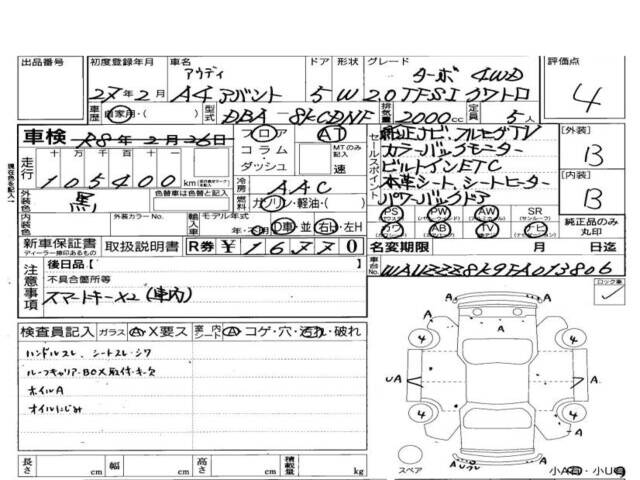 出品番号 初度登録年月 車名 ドア 形状 グレード 評価点
アウディ ターボ 4WD
27年2月 A4アバント 5 W 2.0TFSIクワトロ 4
車歴 自家用・( ) 型式 DBA-8KCDNF 排気量 2000cc 定員 5人
車検 R8年2月26日 フロア AT セールスポイント 純正ナビ、フルセグTV [外装]
走行 十万千百十 コラム・ MTのみ記入 カラーバックモニター B
105400km ダッシュ 速 ビルトインETC
外装色 黒 色替車は色替と記入 冷房 AAC 本革シート、シートヒーター [内装]
燃料 ガソリン・軽油・( ) パワーバックドア B
内装色 外装カラーNo. 輸入車 モデル年式 PS PW AW SR 純正品のみ丸印
年 D車・並 右H・左H カワ AB TV ナビ
新車保証書 取扱説明書 R券 ¥ 0 名変期限 月 日迄
ディーラー捺印あるもの
注意事項 後日品【 】 車台No. WAUZZZ8K9FA013806
不具合箇所等 ロック車
スマートキーX2(車内)
検査員記入 ガラス A・X要ス 室内シート A コゲ・穴・汚れ・破れ
ハンドルスレ、シートスレ・シワ
ルーフキャリア・BOX取付・キ欠
ホイルA
オイルにじみ
A A A
4 4
UA A A
4 4
A
スペア
長さ cm 幅 cm 高さ cm 積載量 kg 小A・小U
現在色を記入